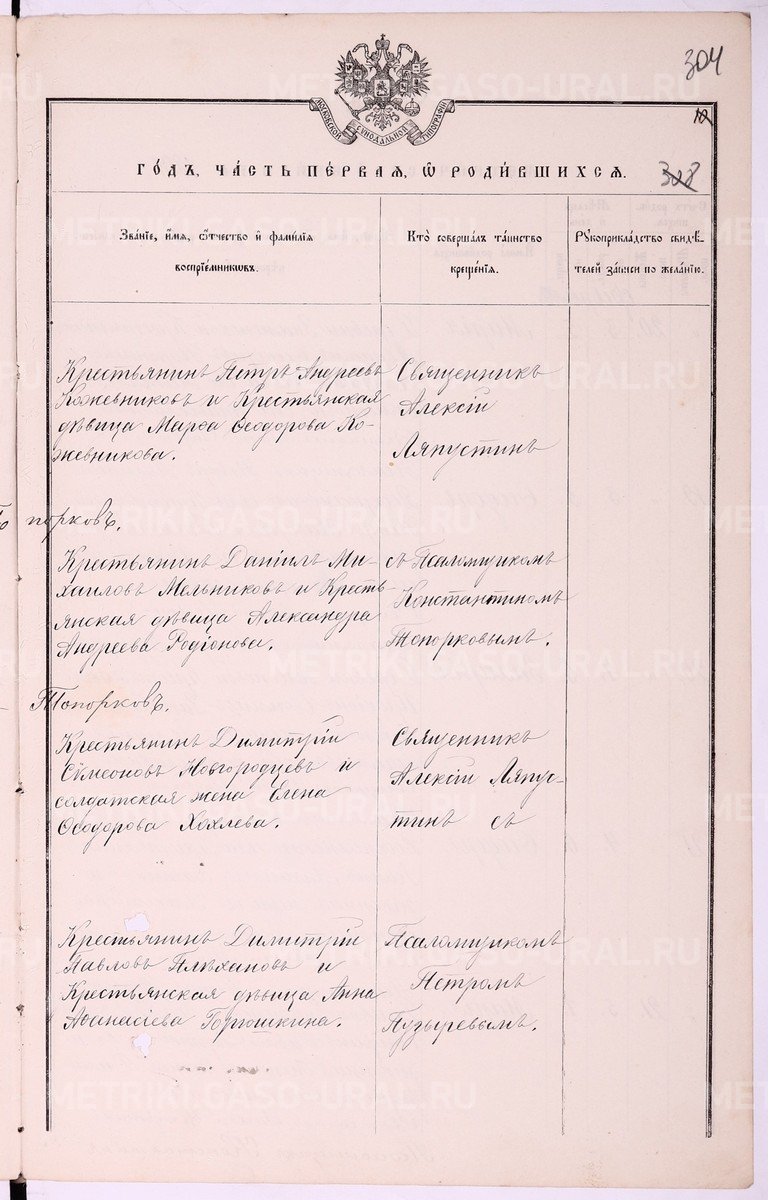 304
МОСКОВСКОЙ СѴНОДАЛЬНОЙ ТИПОГРАФІИ
10
ГОДЪ, ЧАСТЬ ПЕРВАЯ, Ѡ РОДИВШИХСЯ.
308
Званіе, имя, отчество и фамилія воспріемниковъ.
Кто совершалъ таинство крещенія.
Рукоприкладство свидѣтелей записи по желанію.
Крестьянинъ Петръ Андреевъ
Кожевниковъ и Крестьянская
дѣвица Марѳа Ѳеодорова Ко-
жевникова.
Священникъ
Алексій
Ляпустинъ
порковъ.
Крестьянинъ Даніилъ Ми-
хаиловъ Мельниковъ и Кресть-
янская дѣвица Александра
Андреева Родіонова.
съ Псаломщикомъ
Константиномъ
Топорковымъ.
Топорковъ.
Крестьянинъ Димитрій
Сѵмеоновъ Новгородцевъ и
солдатская жена Елена
Ѳеодорова Хохлева.
Священникъ
Алексій Ляпус-
тинъ съ
Крестьянинъ Димитрій
Павловъ Плѣхановъ и
Крестьянская дѣвица Анна
Аѳанасіева Горюшкина.
Псаломщикомъ
Петромъ
Пузыревымъ.
METRIKI.GASO-URAL.RU